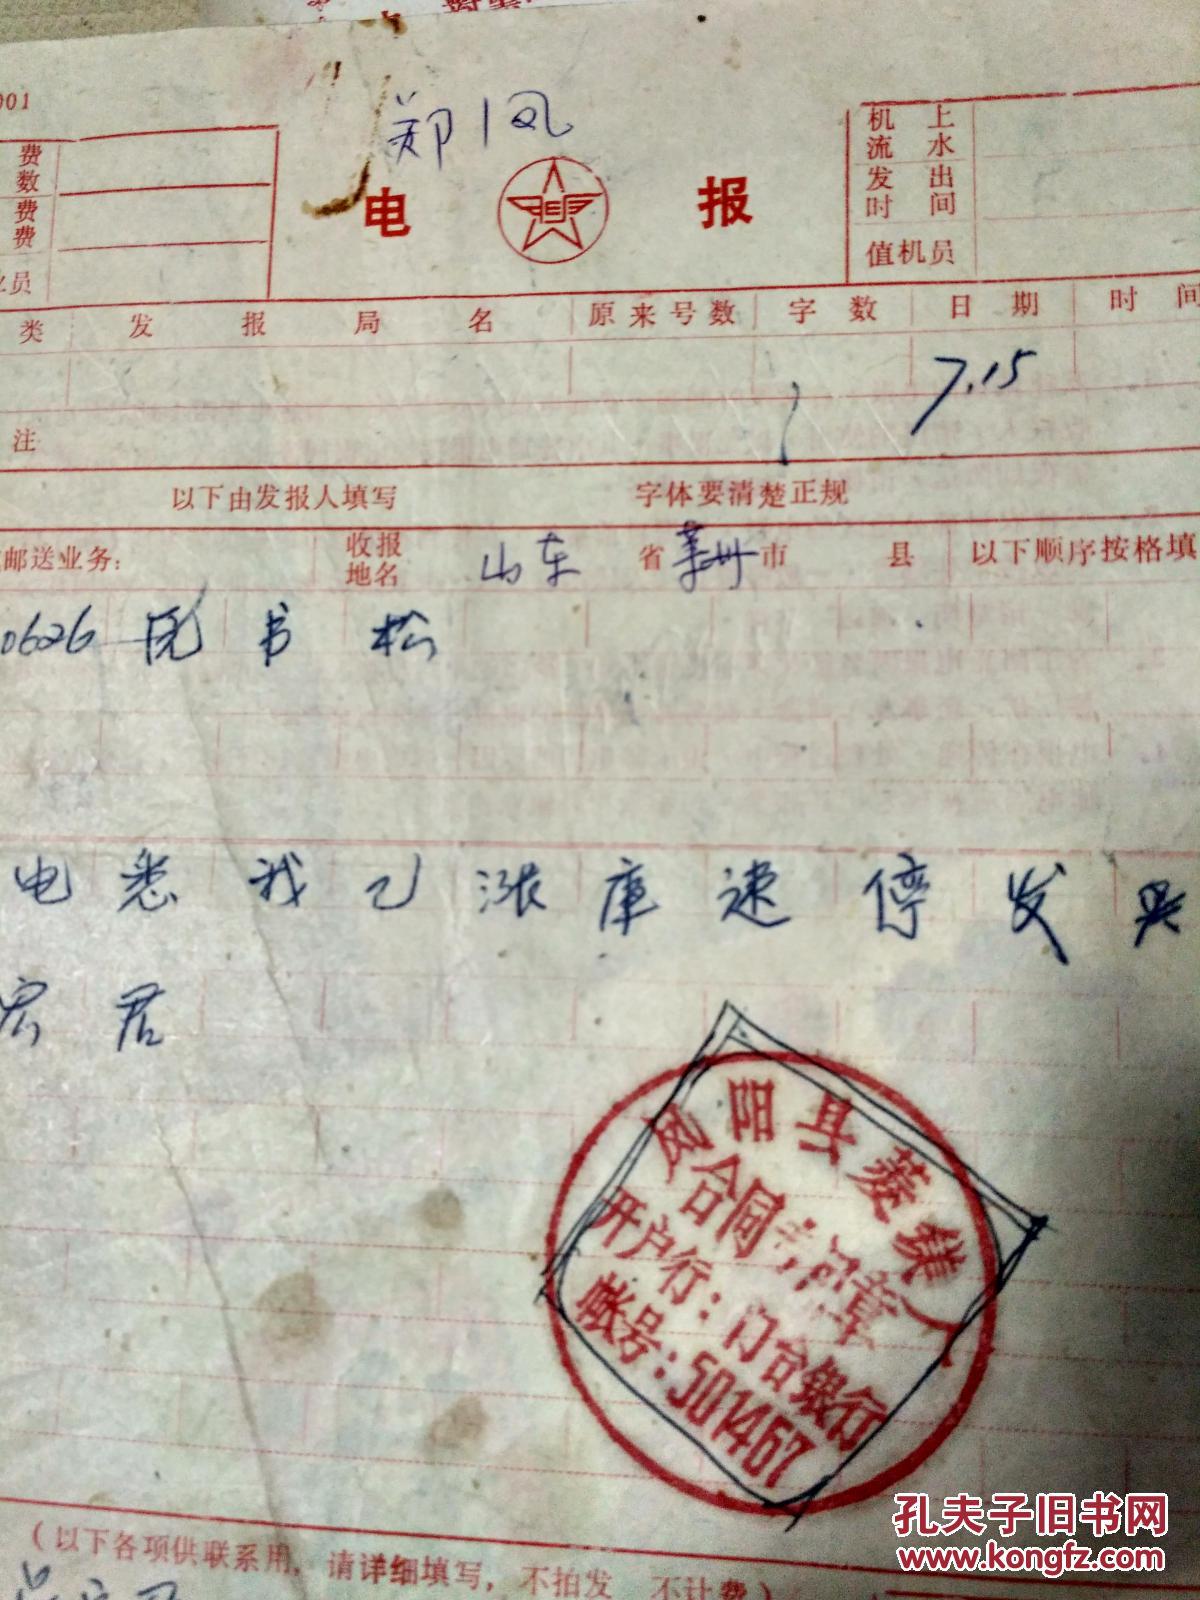 001
郑 凤
费 数
费 费
员
电 报
机 上
流 水
发 出
时 间
值机员
类 发 报 局 名 原来号数 字 数 日 期 时 间
7.15
注
以下由发报人填写 字体要清楚正规
邮送业务: 收报地名 山东 省 莱州 市 县 以下顺序按格填
0626 书 松
电 悉 我 已 涨 库 速 停 发 吴
宏 君
凤阳县蒌绨厂
合同专用章
开户行:门台银行
帐号:501467
(以下各项供联系用,请详细填写,不拍发 不计费)
孔夫子旧书网
www.kongfz.com